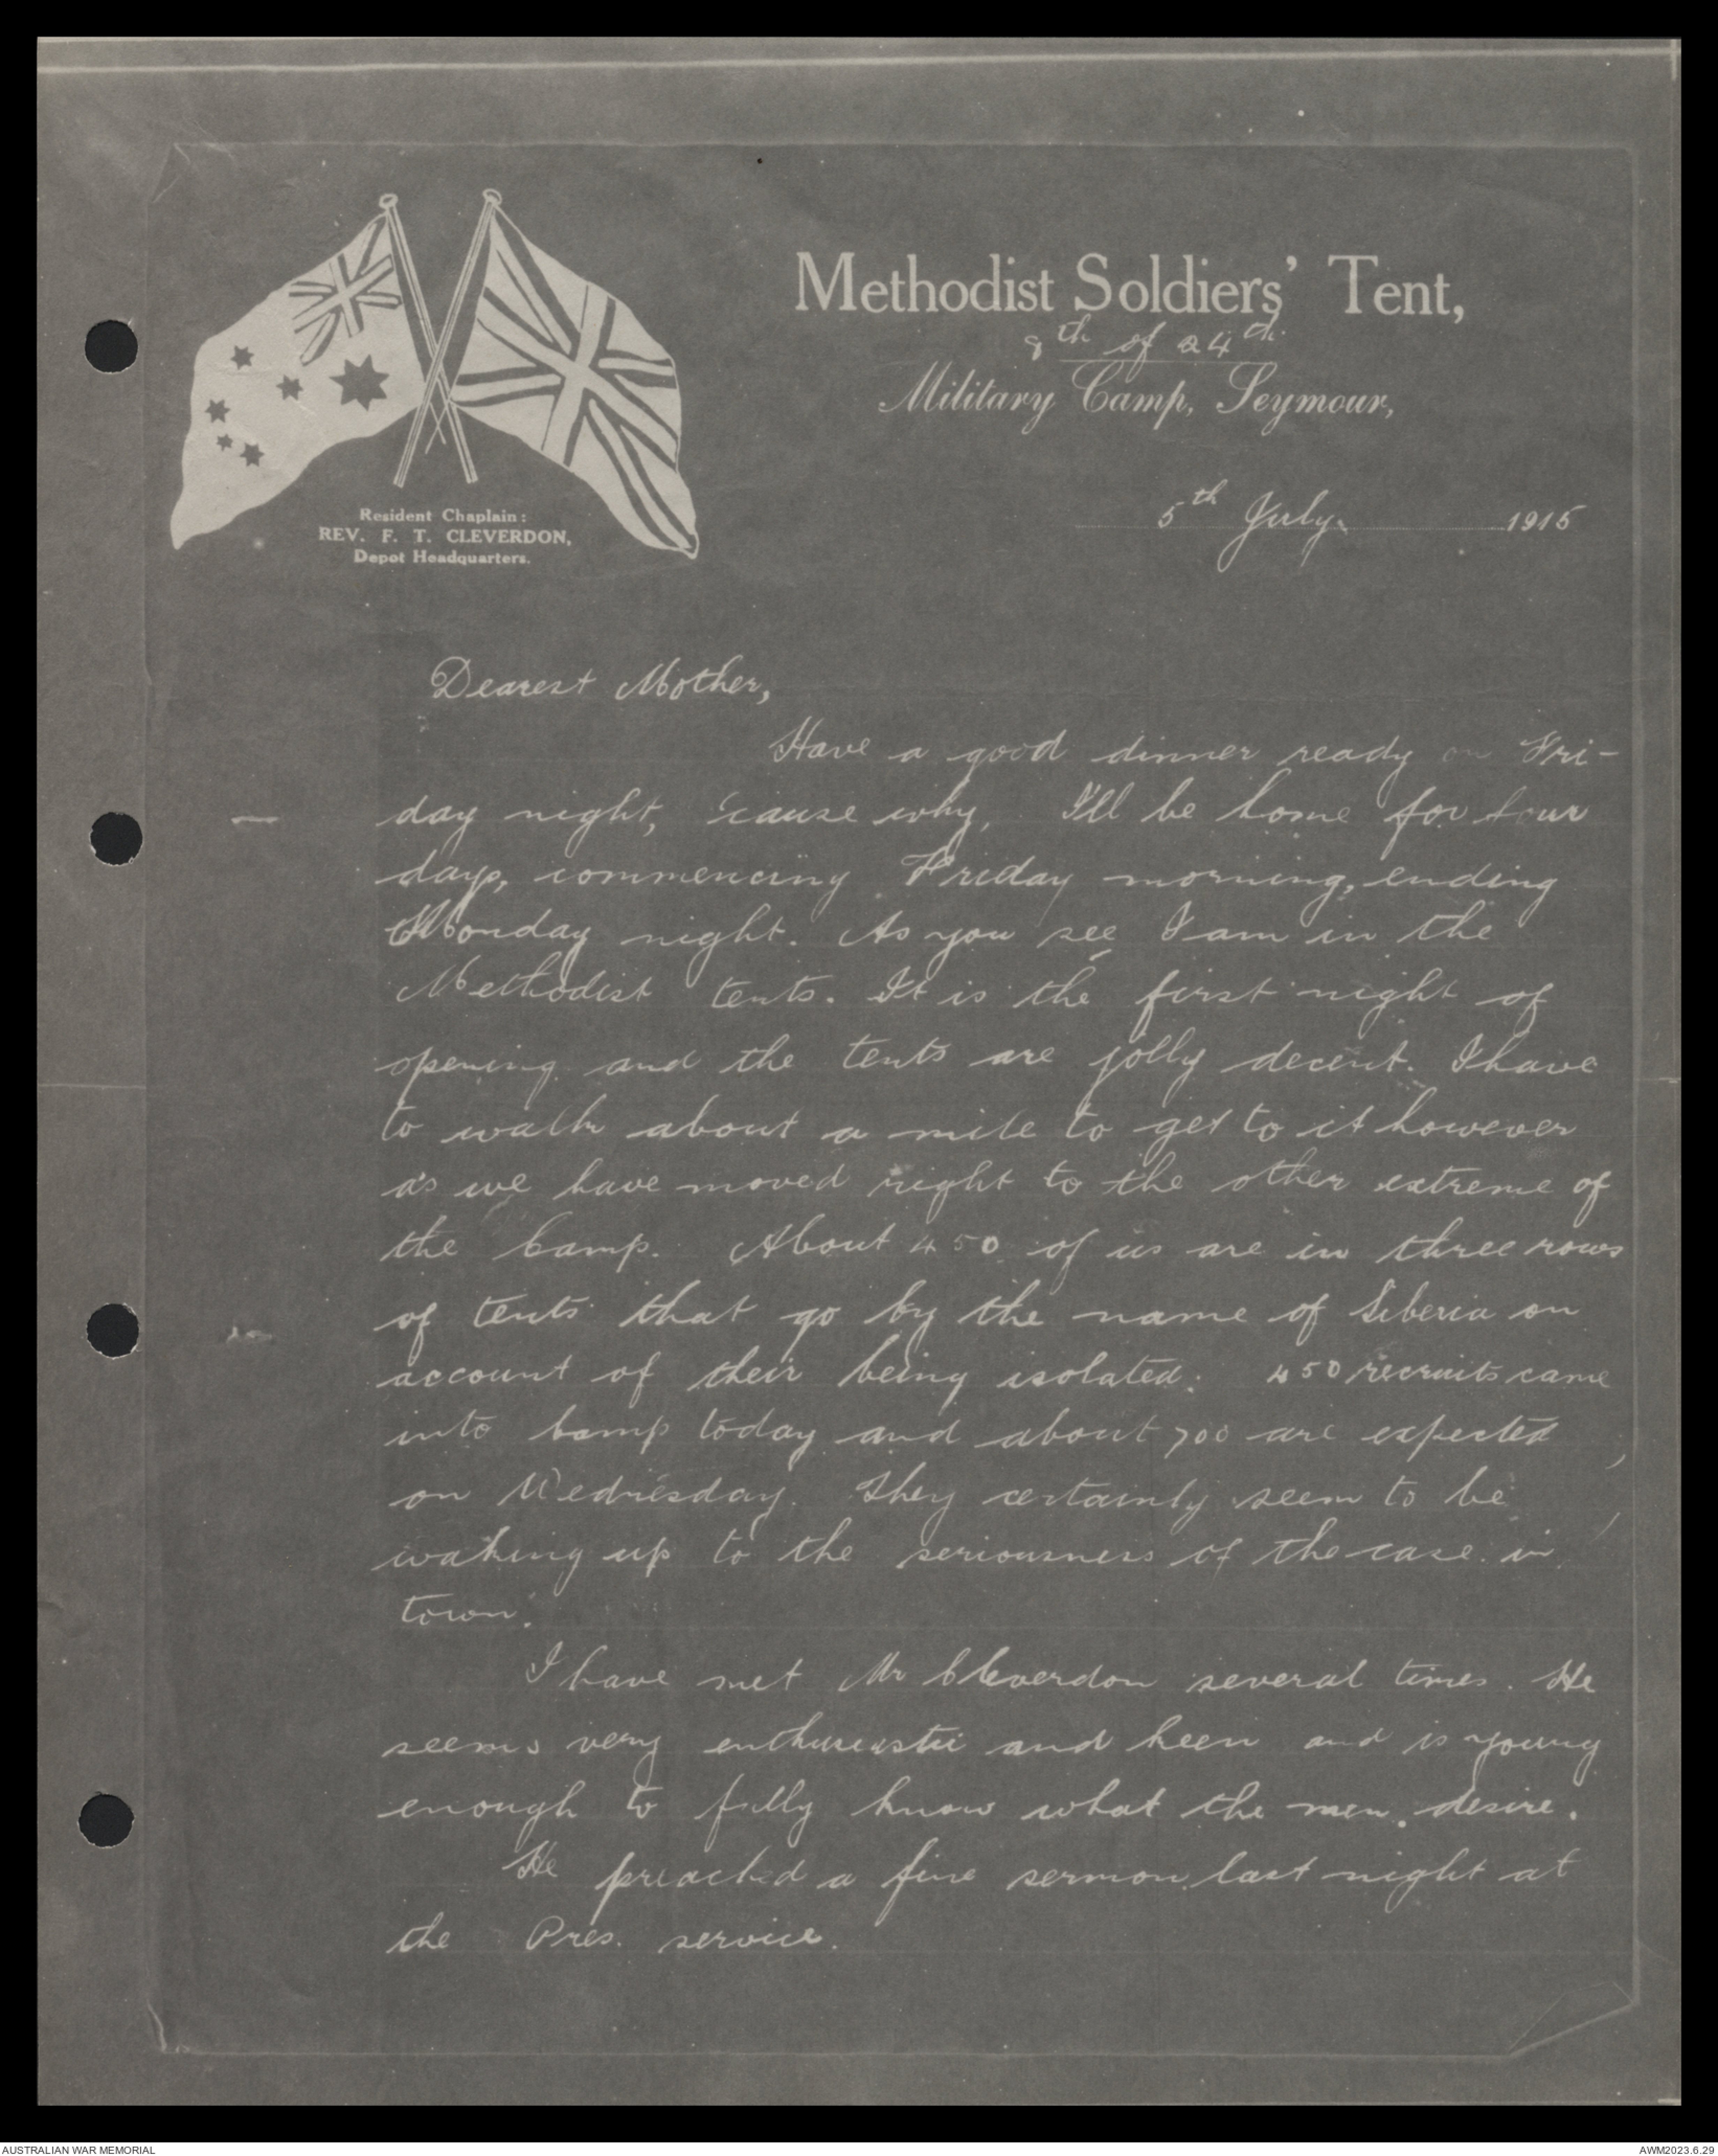 Methodist Soldiers' Tent,
8th of 24th
Military Camp, Seymour,
5th July. 1915
Resident Chaplain:
REV. F. T. CLEVERDON,
Depot Headquarters.
Dearest Mother,
Have a good dinner ready on Fri-
day night, 'cause why, I'll be home for four
days, commencing Friday morning, ending
Monday night. As you see I am in the
Methodist tents. It is the first night of
opening and the tents are jolly decent. I have
to walk about a mile to get to it however
as we have moved right to the other extreme of
the Camp. About 450 of us are in three rows
of tents that go by the name of Siberia on
account of their being isolated. 450 recruits came
into Camp today and about 700 are expected
on Wednesday. They certainly seem to be
waking up to the seriousness of the case in
town.
I have met Mr Cleverdon several times. He
seems very enthusiastic and keen and is young
enough to fully know what the men desire.
He preached a fine sermon last night at
the Pres. service.
AUSTRALIAN WAR MEMORIAL
AWM2023.6.29